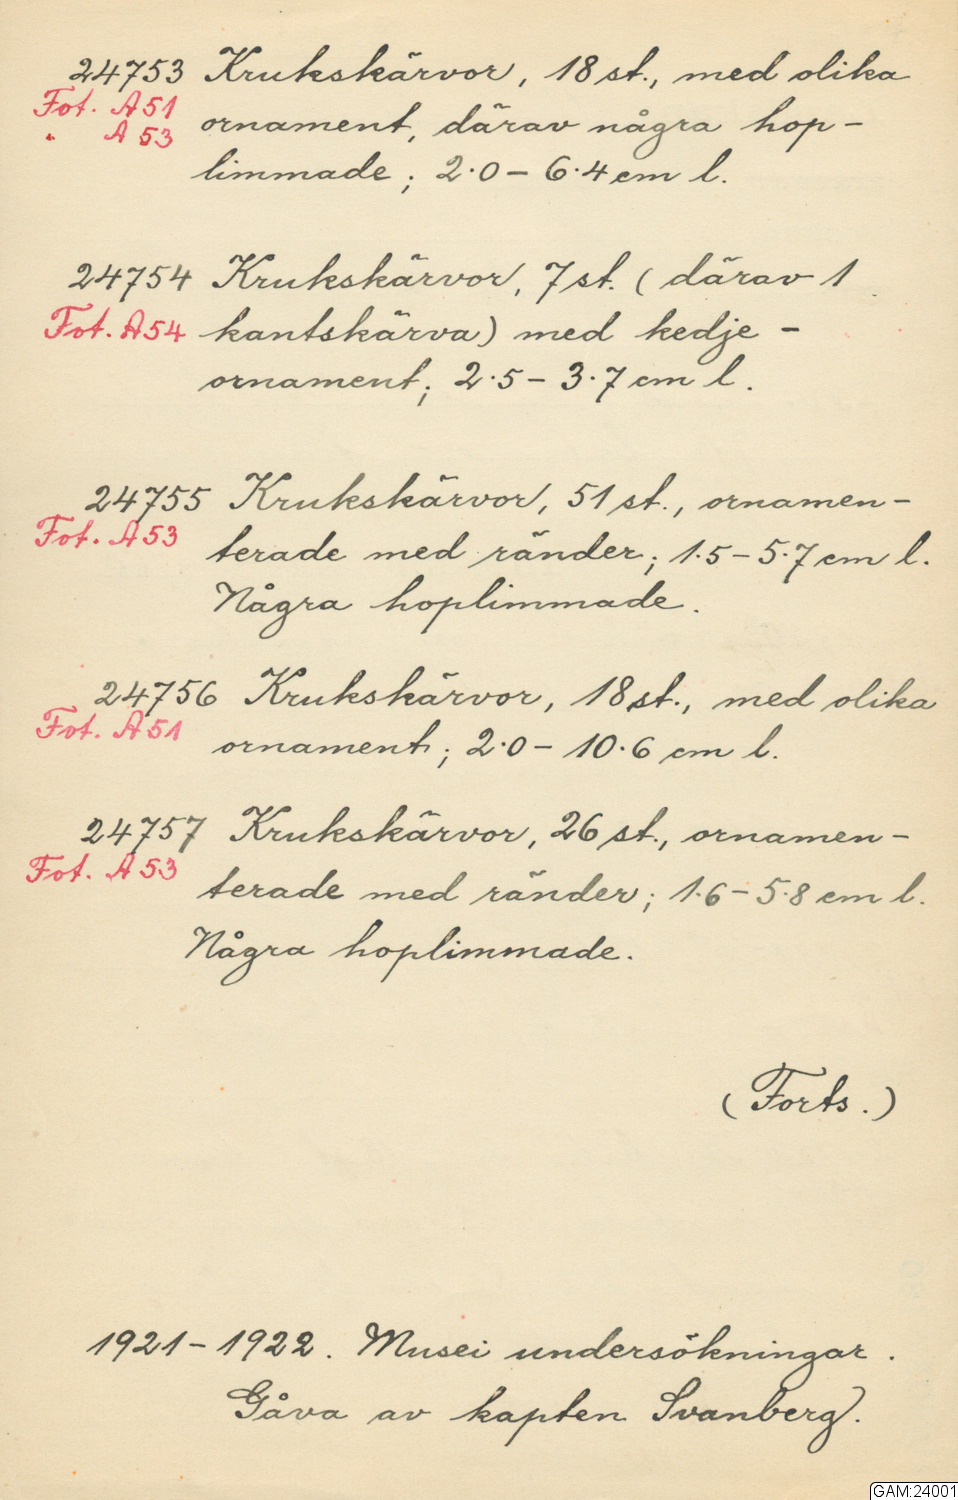 24753 Krukskärvor, 18 st., med olika
Fot. A51
" A53
ornament, därav några hop-
limmade; 2.0 - 6.4 cm l.
24754 Krukskärvor, 7 st. (därav 1
Fot. A54 kantskärva) med kedje-
ornament; 2.5 - 3.7 cm l.
24755 Krukskärvor, 51 st., ornamen-
Fot. A53
terade med ränder; 1.5 - 5.7 cm l.
Några hoplimmade.
24756 Krukskärvor, 18 st., med olika
Fot. A51
ornament; 2.0 - 10.6 cm l.
24757 Krukskärvor, 26 st., ornamen-
Fot. A53
terade med ränder; 1.6 - 5.8 cm l.
Några hoplimmade.
(Forts.)
1921-1922. Musei undersökningar.
Gåva av kapten Svanberg.
GAM:24001